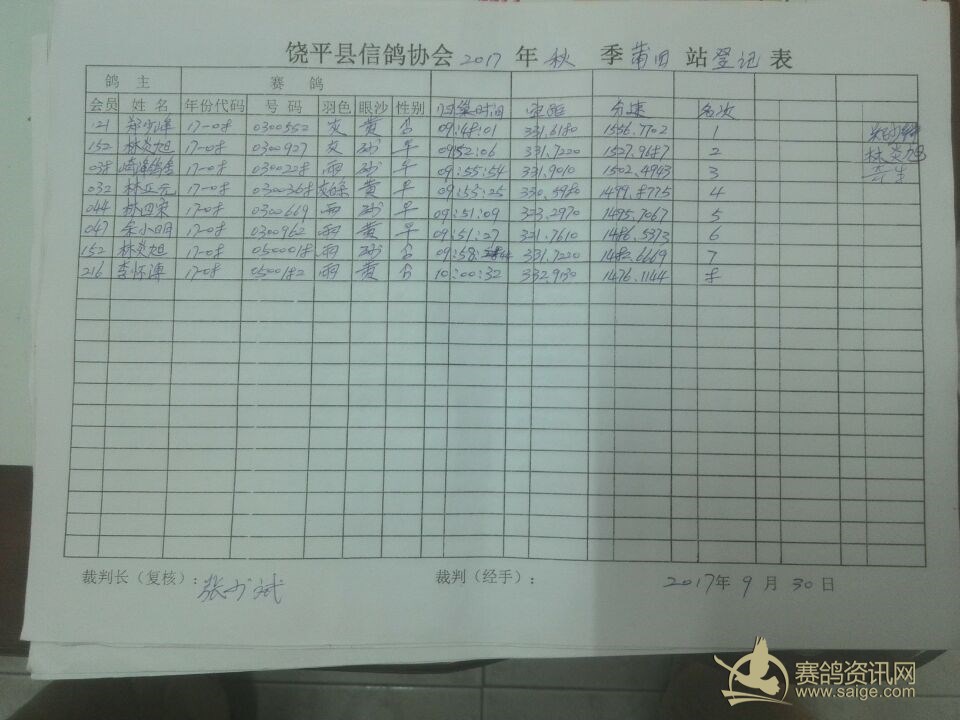 饶平县信鸽协会 2017 年 秋 季 莆田 站 登记 表
鸽 主 赛 鸽
会员 姓名 年份代码 号码 羽色 眼沙 性别 归巢时间 空距 分速 名次
121 郑少峰 17-08 0300552 灰 黄 合 09:48:01 331.6180 1556.7702 1
152 林炎旭 17-08 0300927 灰 砂 平 09:52:06 331.7220 1527.9687 2 林炎旭
038 17-08 0300228 雨 砂 平 09:55:54 331.9010 1502.4943 3
032 林正元 17-08 0300368 黄 平 09:53:25 330.5980 1499.8775 4
044 林四宋 17-08 0300669 雨 砂 平 09:51:09 323.2970 1495.7067 5
047 余小明 17-08 0300962 雨 黄 平 09:51:27 321.7610 1486.5373 6
152 林炎旭 17-08 0500018 雨 砂 合 09:58: 331.7220 1482.6669 7
216 李怀海 17-08 0500182 雨 黄 合 10:00:32 332.9130 1476.1144 8
裁判长（复核）： 裁判（经手）： 2017年 9 月 30 日
赛鸽资讯网
www.saige.com